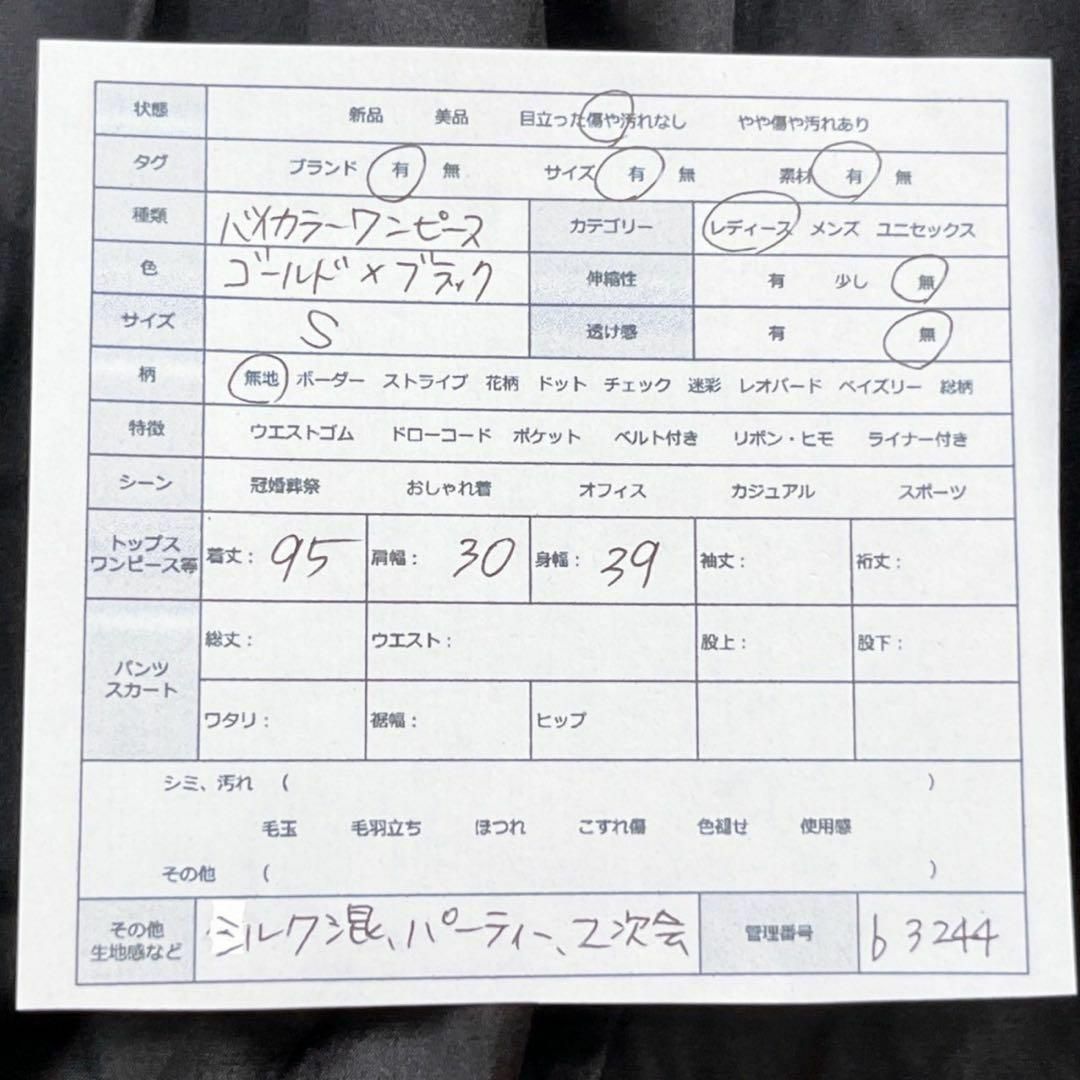 状態 新品 美品 目立った傷や汚れなし やや傷や汚れあり
タグ ブランド 有 無 サイズ 有 無 素材 有 無
種類 バイカラーワンピース カテゴリー レディース メンズ ユニセックス
色 ゴールド×ブラック 伸縮性 有 少し 無
サイズ S 透け感 有 無
柄 無地 ボーダー ストライプ 花柄 ドット チェック 迷彩 レオパード ペイズリー 総柄
特徴 ウエストゴム ドローコード ポケット ベルト付き リボン・ヒモ ライナー付き
シーン 冠婚葬祭 おしゃれ着 オフィス カジュアル スポーツ
トップス
ワンピース等 着丈： 95 肩幅： 30 身幅： 39 袖丈： 裄丈：
パンツ
スカート 総丈： ウエスト： 股上： 股下：
ワタリ： 裾幅： ヒップ
シミ、汚れ （ ）
毛玉 毛羽立ち ほつれ こすれ傷 色褪せ 使用感
その他 （ ）
その他
生地感など シルク混、パーティー、2次会 管理番号 b3244